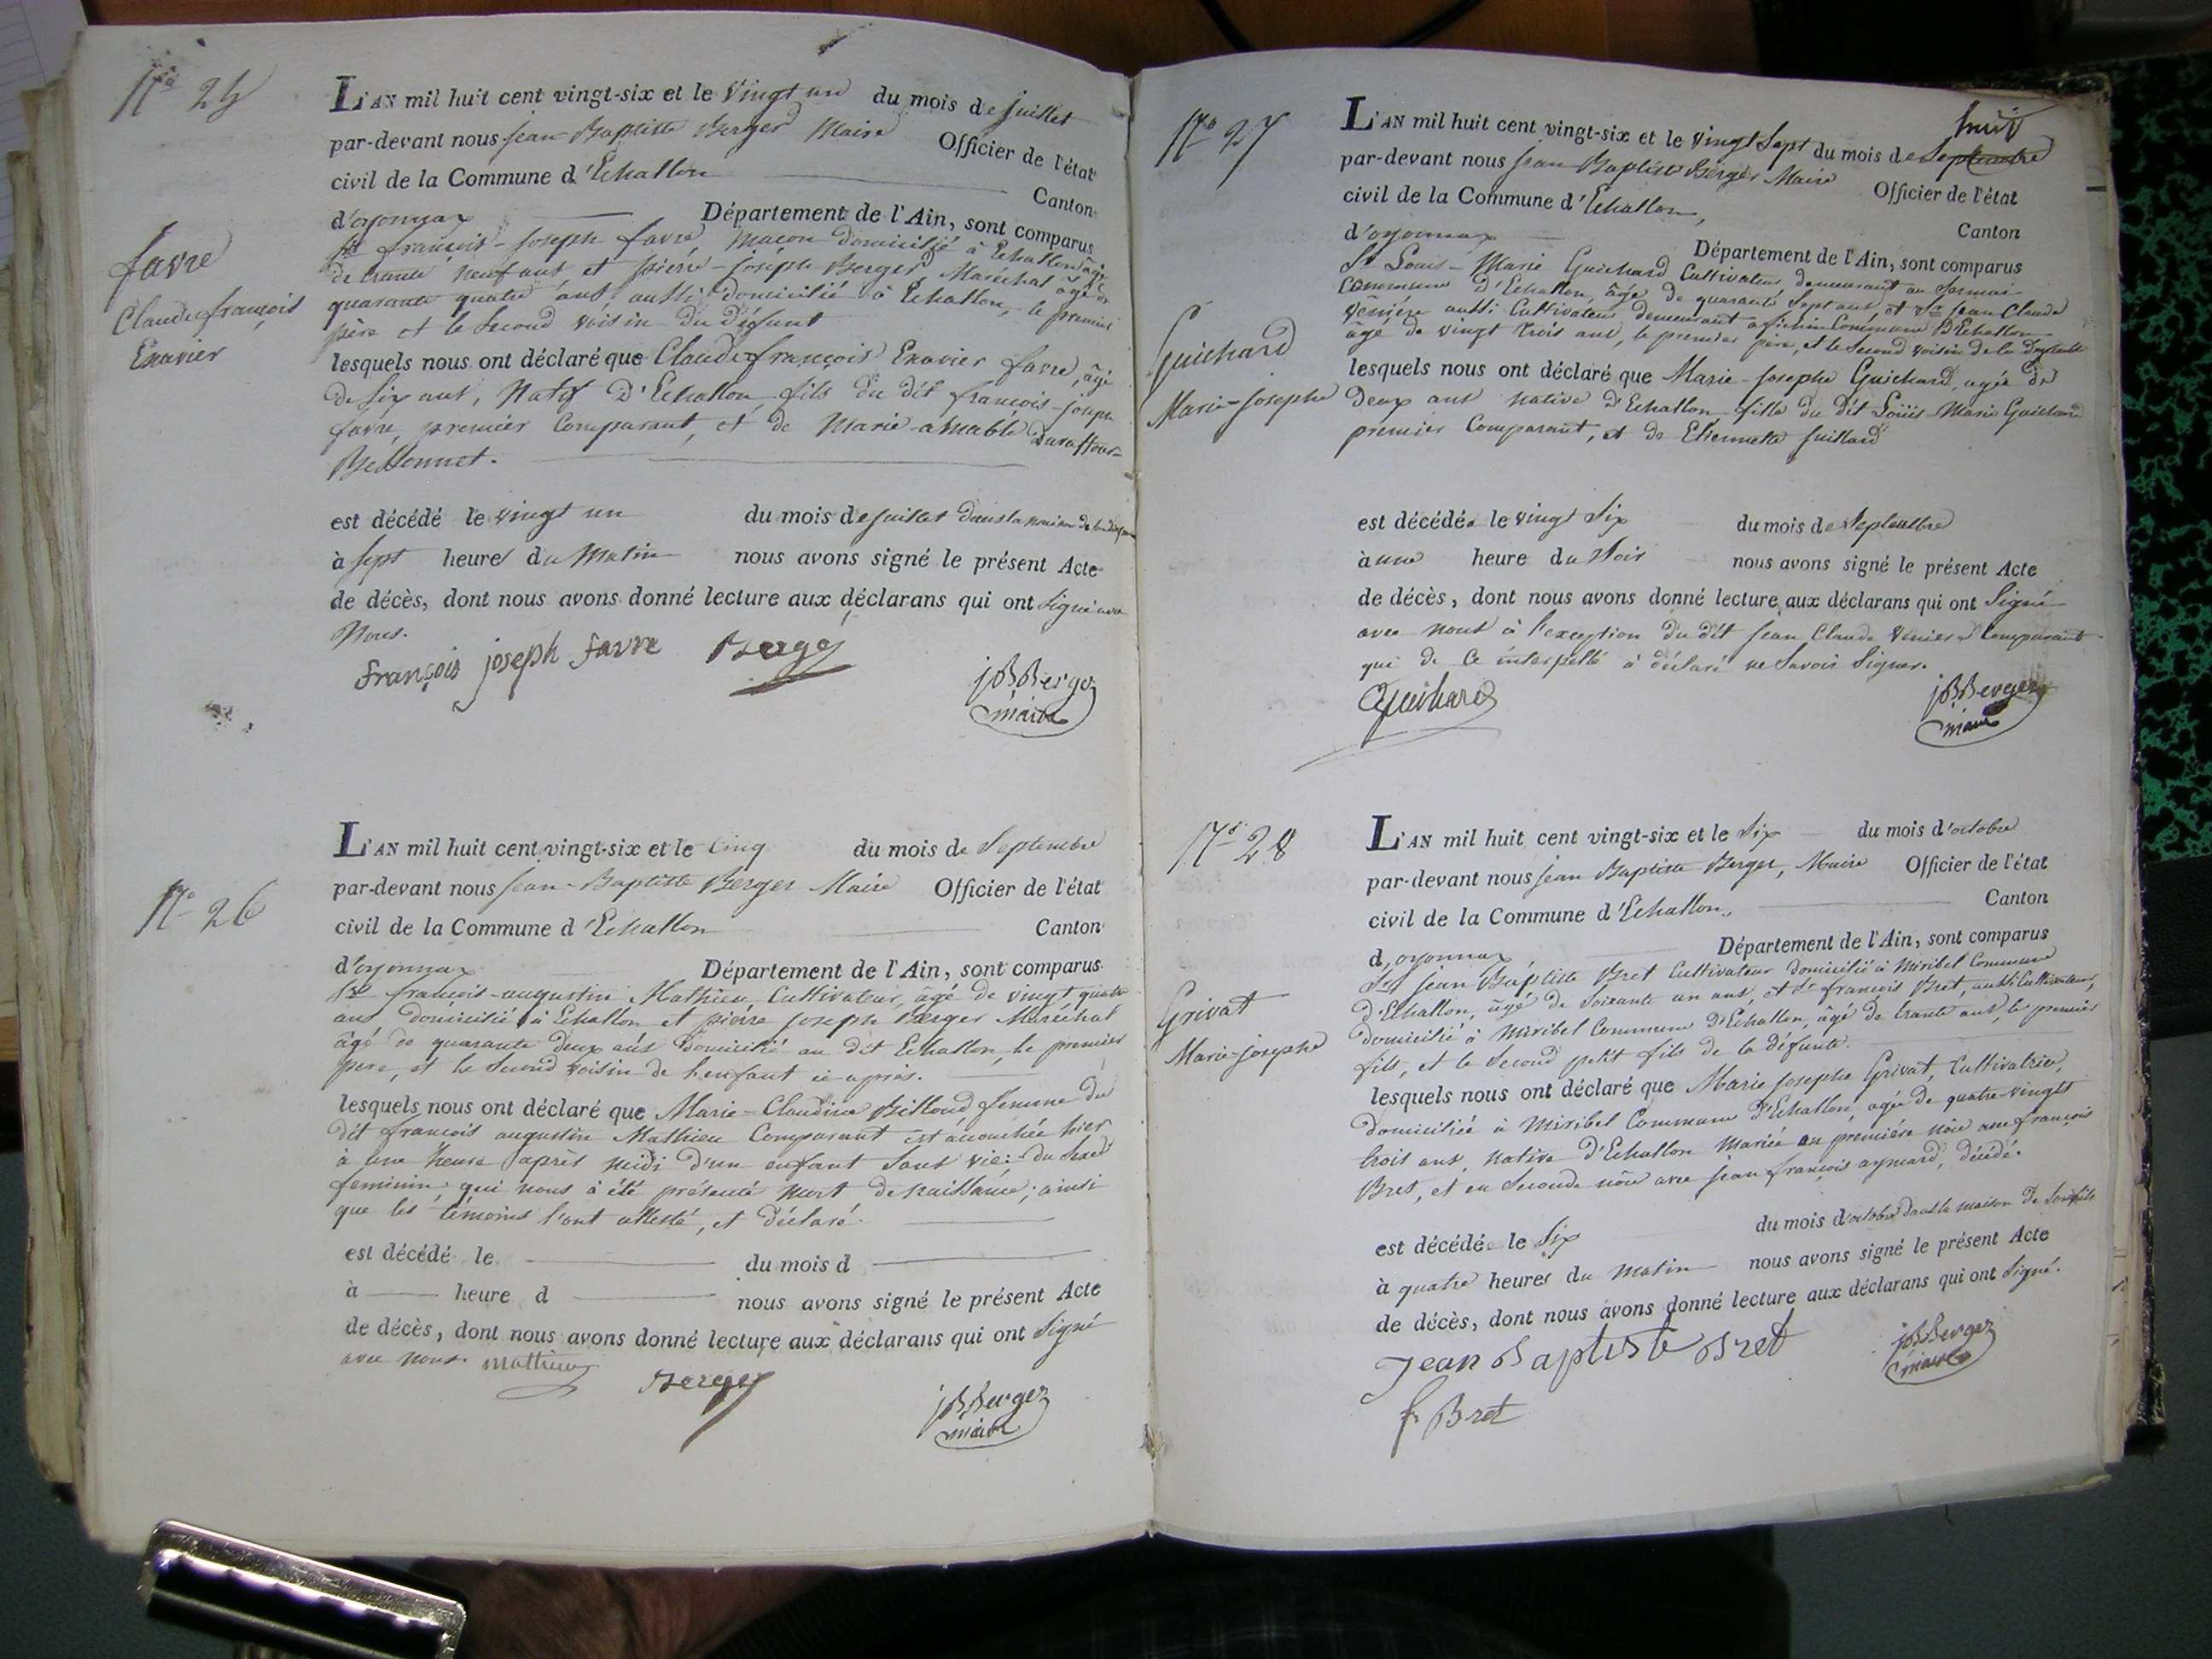 No 25
L'AN mil huit cent vingt-six et le Vingt un du mois de juillet
par-devant nous jean Baptiste Berger Maire Officier de l'état
civil de la Commune d'Echallon Canton
d'oyonnax Département de l'Ain, sont comparus
Srs françois-joseph favre, maçon domicilié à Echallon âgé
de trante neuf ans et pierre-joseph Berger Maréchal âgé de
quarante quatre ans, aussi domicilié à Echallon, le premier
père et le second voisin du défunt
favre
Claude françois
Exavier
lesquels nous ont déclaré que Claude françois Exavier favre, âgé
de Six ans, Natif D'Echallon fils du dit françois-joseph
favre, premier Comparant, et de Marie-aimable
Bellonnet.
est décédé le vingt un du mois de juillet dans la maison
à sept heures du Matin nous avons signé le présent Acte
de décès, dont nous avons donné lecture aux déclarans qui ont Signé avec
Nous.
françois joseph favre Berger
jB Berger
maire
No 26
L'AN mil huit cent vingt-six et le Cinq du mois de Septembre
par-devant nous jean-Baptiste Berger Maire Officier de l'état
civil de la Commune d'Echallon Canton
d'oyonnax Département de l'Ain, sont comparus
Srs françois-augustin Mathieu Cultivateur, âgé de vingt quatre
ans domicilié à Echallon et pierre joseph Berger Maréchal
âgé de quarante Deux ans Domicilié au dit Echallon, le premier
père, et le Second voisin de l'enfant ci après.
lesquels nous ont déclaré que Marie-Claudine Billoud femme du
dit françois augustin Mathieu Comparant est acouchée hier
à une heure après midi d'un enfant Sans vie: du Sexe
feminin; qui nous à été présenté mort de naissance; ainsi
que les témoins l'ont attesté, et déclaré.
est décédé le du mois d
à heure d nous avons signé le présent Acte
de décès, dont nous avons donné lecture aux déclarans qui ont Signé
avec nous. mathieu
Berger
jB Berger
maire
No 27
L'AN mil huit cent vingt-six et le Vingt Sept du mois de Septembre
par-devant nous jean Baptiste Berger Maire Officier de l'état
civil de la Commune d'Echallon, Canton
d'oyonnax Département de l'Ain, sont comparus
Sr Louis-Marie Guichard Cultivateur, demeurant au
Commune d'Echallon, âgé de quarante Sept ans, et Sr jean Claude
Venière aussi Cultivateur demeurant a Commune D'Echallon
âgé de vingt trois ans, le premier père, et le Second voisin de la
Guichard
Marie-josephe
lesquels nous ont déclaré que Marie-josephe Guichard, agée de
Deux ans native d'Echallon fille du dit Loüis-Marie Guichard
premier Comparant, et de Etiennette juillard
est décédée le vingt Six du mois de Septembre
à une heure du Soir nous avons signé le présent Acte
de décès, dont nous avons donné lecture aux déclarans qui ont Signé
avec nous à l'exception du dit jean Claude Venier Comparant
qui de Ce interpellé à déclaré ne Savoir Signer.
Guichard
jB Berger
maire
No 28
L'AN mil huit cent vingt-six et le Six du mois d'octobre
par-devant nous jean Baptiste Berger, Maire Officier de l'état
civil de la Commune d'Echallon, Canton
d'oyonnax Département de l'Ain, sont comparus
Srs jean Baptiste Bret Cultivateur domicilié à Miribel Commune
d'Echallon, âgé de Soixante un ans, et Sr françois Bret, aussi Cultivateur,
Domicilié à Miribel Commune d'Echallon, âgé de trante ans, le premier
fils, et le Second petit fils de la défunte.
Grivat
Marie-josephe
lesquels nous ont déclaré que Marie josephe Grivat, Cultivatrice,
domiciliée à Miribel Commune d'Echallon, agée de quatre-vingts
trois ans, native d'Echallon Mariée en première nôce avec françois
Bret, et en Seconde nôce avec jean françois aymard, décédé.
est décédée le Six du mois d'octobre dans la maison de Son fils
à quatre heures du Matin nous avons signé le présent Acte
de décès, dont nous avons donné lecture aux déclarans qui ont Signé.
Jean Baptiste Bret
jB Berger
maire
f Bret